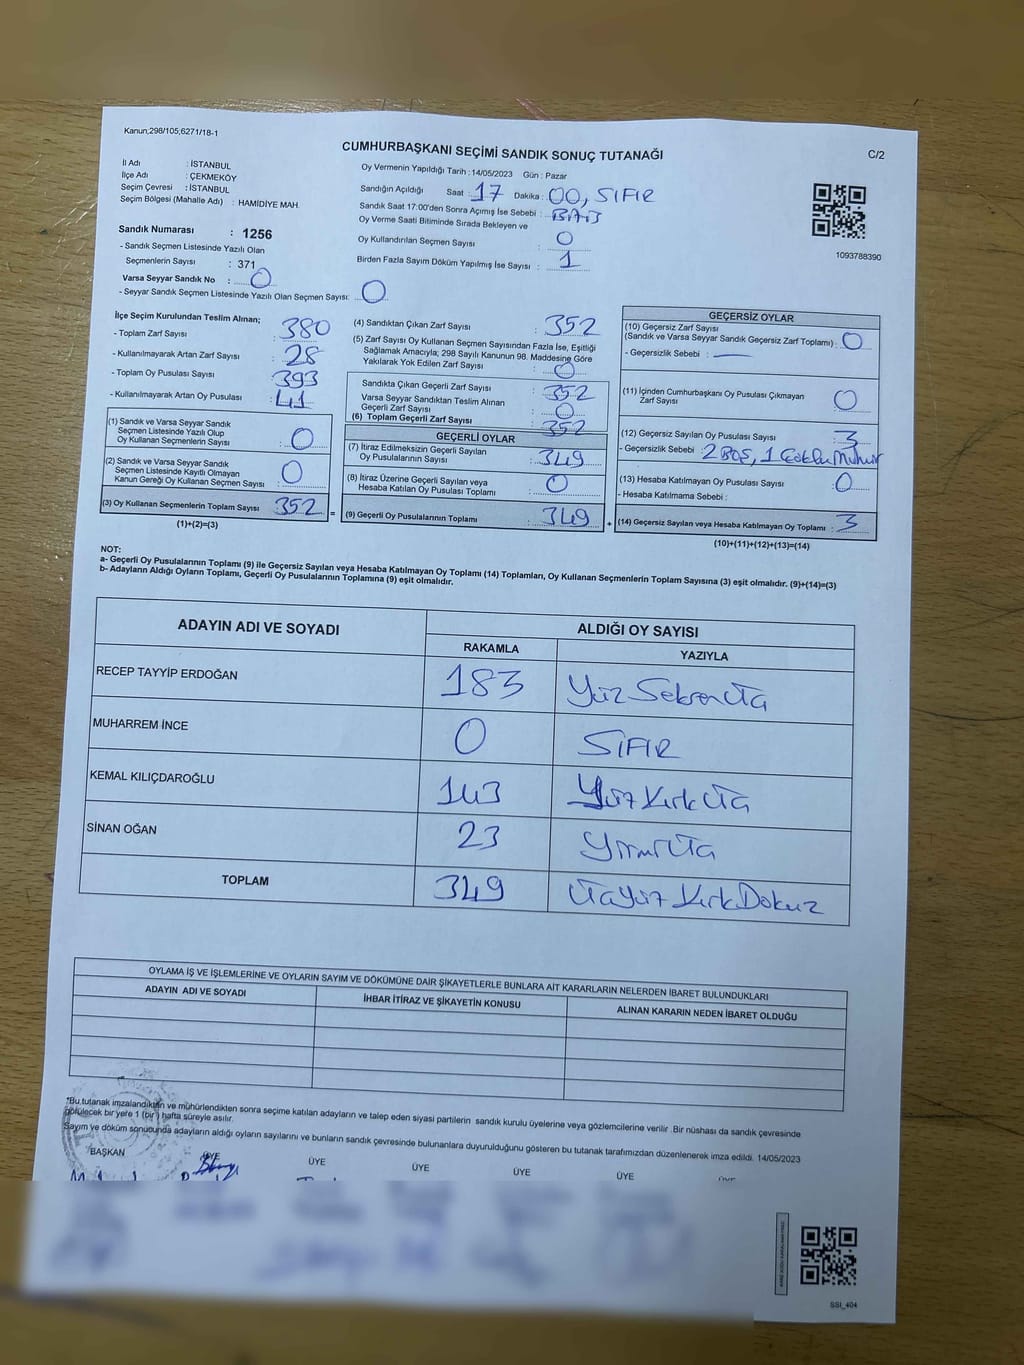 Kanun,298/105,6271/18-1
CUMHURBAŞKANI SEÇİMİ SANDIK SONUÇ TUTANAĞI
C/2
İl Adı : İSTANBUL
İlçe Adı : ÇEKMEKÖY
Seçim Çevresi : İSTANBUL
Seçim Bölgesi (Mahalle Adı) : HAMİDİYE MAH.
Oy Vermenin Yapıldığı Tarih :14/05/2023 Gün : Pazar
Sandığın Açıldığı Saat : 17 Dakika : 00, SIFIR
Sandık Saat 17:00'den Sonra Açımış İse Sebebi :
Oy Verme Saati Bitiminde Sırada Bekleyen ve
Oy Kullandırılan Seçmen Sayısı : 0
Birden Fazla Sayım Döküm Yapılmış İse Sayısı : 1
1093788390
Sandık Numarası : 1256
- Sandık Seçmen Listesinde Yazılı Olan
Seçmenlerin Sayısı : 371
Varsa Seyyar Sandık No : 0
- Seyyar Sandık Seçmen Listesinde Yazılı Olan Seçmen Sayısı: 0
İlçe Seçim Kurulundan Teslim Alınan;
- Toplam Zarf Sayısı : 380
- Kullanılmayarak Artan Zarf Sayısı : 28
- Toplam Oy Pusulası Sayısı : 393
- Kullanılmayarak Artan Oy Pusulası : 41
(1) Sandık ve Varsa Seyyar Sandık
Seçmen Listesinde Yazılı Olup
Oy Kullanan Seçmenlerin Sayısı : 0
(2) Sandık ve Varsa Seyyar Sandık
Seçmen Listesinde Kayıtlı Olmayan
Kanun Gereği Oy Kullanan Seçmen Sayısı : 0
(3) Oy Kullanan Seçmenlerin Toplam Sayısı : 352
(1)+(2)=(3)
=
(4) Sandıktan Çıkan Zarf Sayısı : 352
(5) Zarf Sayısı Oy Kullanan Seçmen Sayısından Fazla İse, Eşitliği
Sağlamak Amacıyla; 298 Sayılı Kanunun 98. Maddesine Göre
Yakılarak Yok Edilen Zarf Sayısı : 0
Sandıkta Çıkan Geçerli Zarf Sayısı : 352
Varsa Seyyar Sandıktan Teslim Alınan
Geçerli Zarf Sayısı : 0
(6) Toplam Geçerli Zarf Sayısı : 352
GEÇERLİ OYLAR
(7) İtiraz Edilmeksizin Geçerli Sayılan
Oy Pusulalarının Sayısı : 349
(8) İtiraz Üzerine Geçerli Sayılan veya
Hesaba Katılan Oy Pusulası Toplamı : 0
(9) Geçerli Oy Pusulalarının Toplamı : 349
+
GEÇERSİZ OYLAR
(10) Geçersiz Zarf Sayısı
(Sandık ve Varsa Seyyar Sandık Geçersiz Zarf Toplamı) : 0
- Geçersizlik Sebebi : —
(11) İçinden Cumhurbaşkanı Oy Pusulası Çıkmayan
Zarf Sayısı : 0
(12) Geçersiz Sayılan Oy Pusulası Sayısı : 3
- Geçersizlik Sebebi : 2 BOŞ, 1 Çoklu Mühür
(13) Hesaba Katılmayan Oy Pusulası Sayısı : 0
- Hesaba Katılmama Sebebi :
(14) Geçersiz Sayılan veya Hesaba Katılmayan Oy Toplamı : 3
(10)+(11)+(12)+(13)=(14)
NOT:
a- Geçerli Oy Pusulalarının Toplamı (9) ile Geçersiz Sayılan veya Hesaba Katılmayan Oy Toplamı (14) Toplamları, Oy Kullanan Seçmenlerin Toplam Sayısına (3) eşit olmalıdır. (9)+(14)=(3)
b- Adayların Aldığı Oyların Toplamı, Geçerli Oy Pusulalarının Toplamına (9) eşit olmalıdır.
ADAYIN ADI VE SOYADI
ALDIĞI OY SAYISI
RAKAMLA YAZIYLA
RECEP TAYYİP ERDOĞAN 183 Yüz Seksen Üç
MUHARREM İNCE 0 SIFIR
KEMAL KILIÇDAROĞLU 143 Yüz Kırk Üç
SİNAN OĞAN 23 Yirmi Üç
TOPLAM 349 Üçyüz Kırk Dokuz
OYLAMA İŞ VE İŞLEMLERİNE VE OYLARIN SAYIM VE DÖKÜMÜNE DAİR ŞİKAYETLERLE BUNLARA AİT KARARLARIN NELERDEN İBARET BULUNDUKLARI
ADAYIN ADI VE SOYADI İHBAR İTİRAZ VE ŞİKAYETİN KONUSU ALINAN KARARIN NEDEN İBARET OLDUĞU
*Bu tutanak imzalandıktan ve mühürlendikten sonra seçime katılan adayların ve talep eden siyasi partilerin sandık kurulu üyelerine veya gözlemcilerine verilir. Bir nüshası da sandık çevresinde
görülecek bir yere 1 (bir) hafta süreyle asılır.
Sayım ve döküm sonucunda adayların aldığı oyların sayılarını ve bunların sandık çevresinde bulunanlara duyurulduğunu gösteren bu tutanak tarafımızdan düzenlenerek imza edildi. 14/05/2023
BAŞKAN ÜYE ÜYE ÜYE ÜYE ÜYE ÜYE
SSİ_404